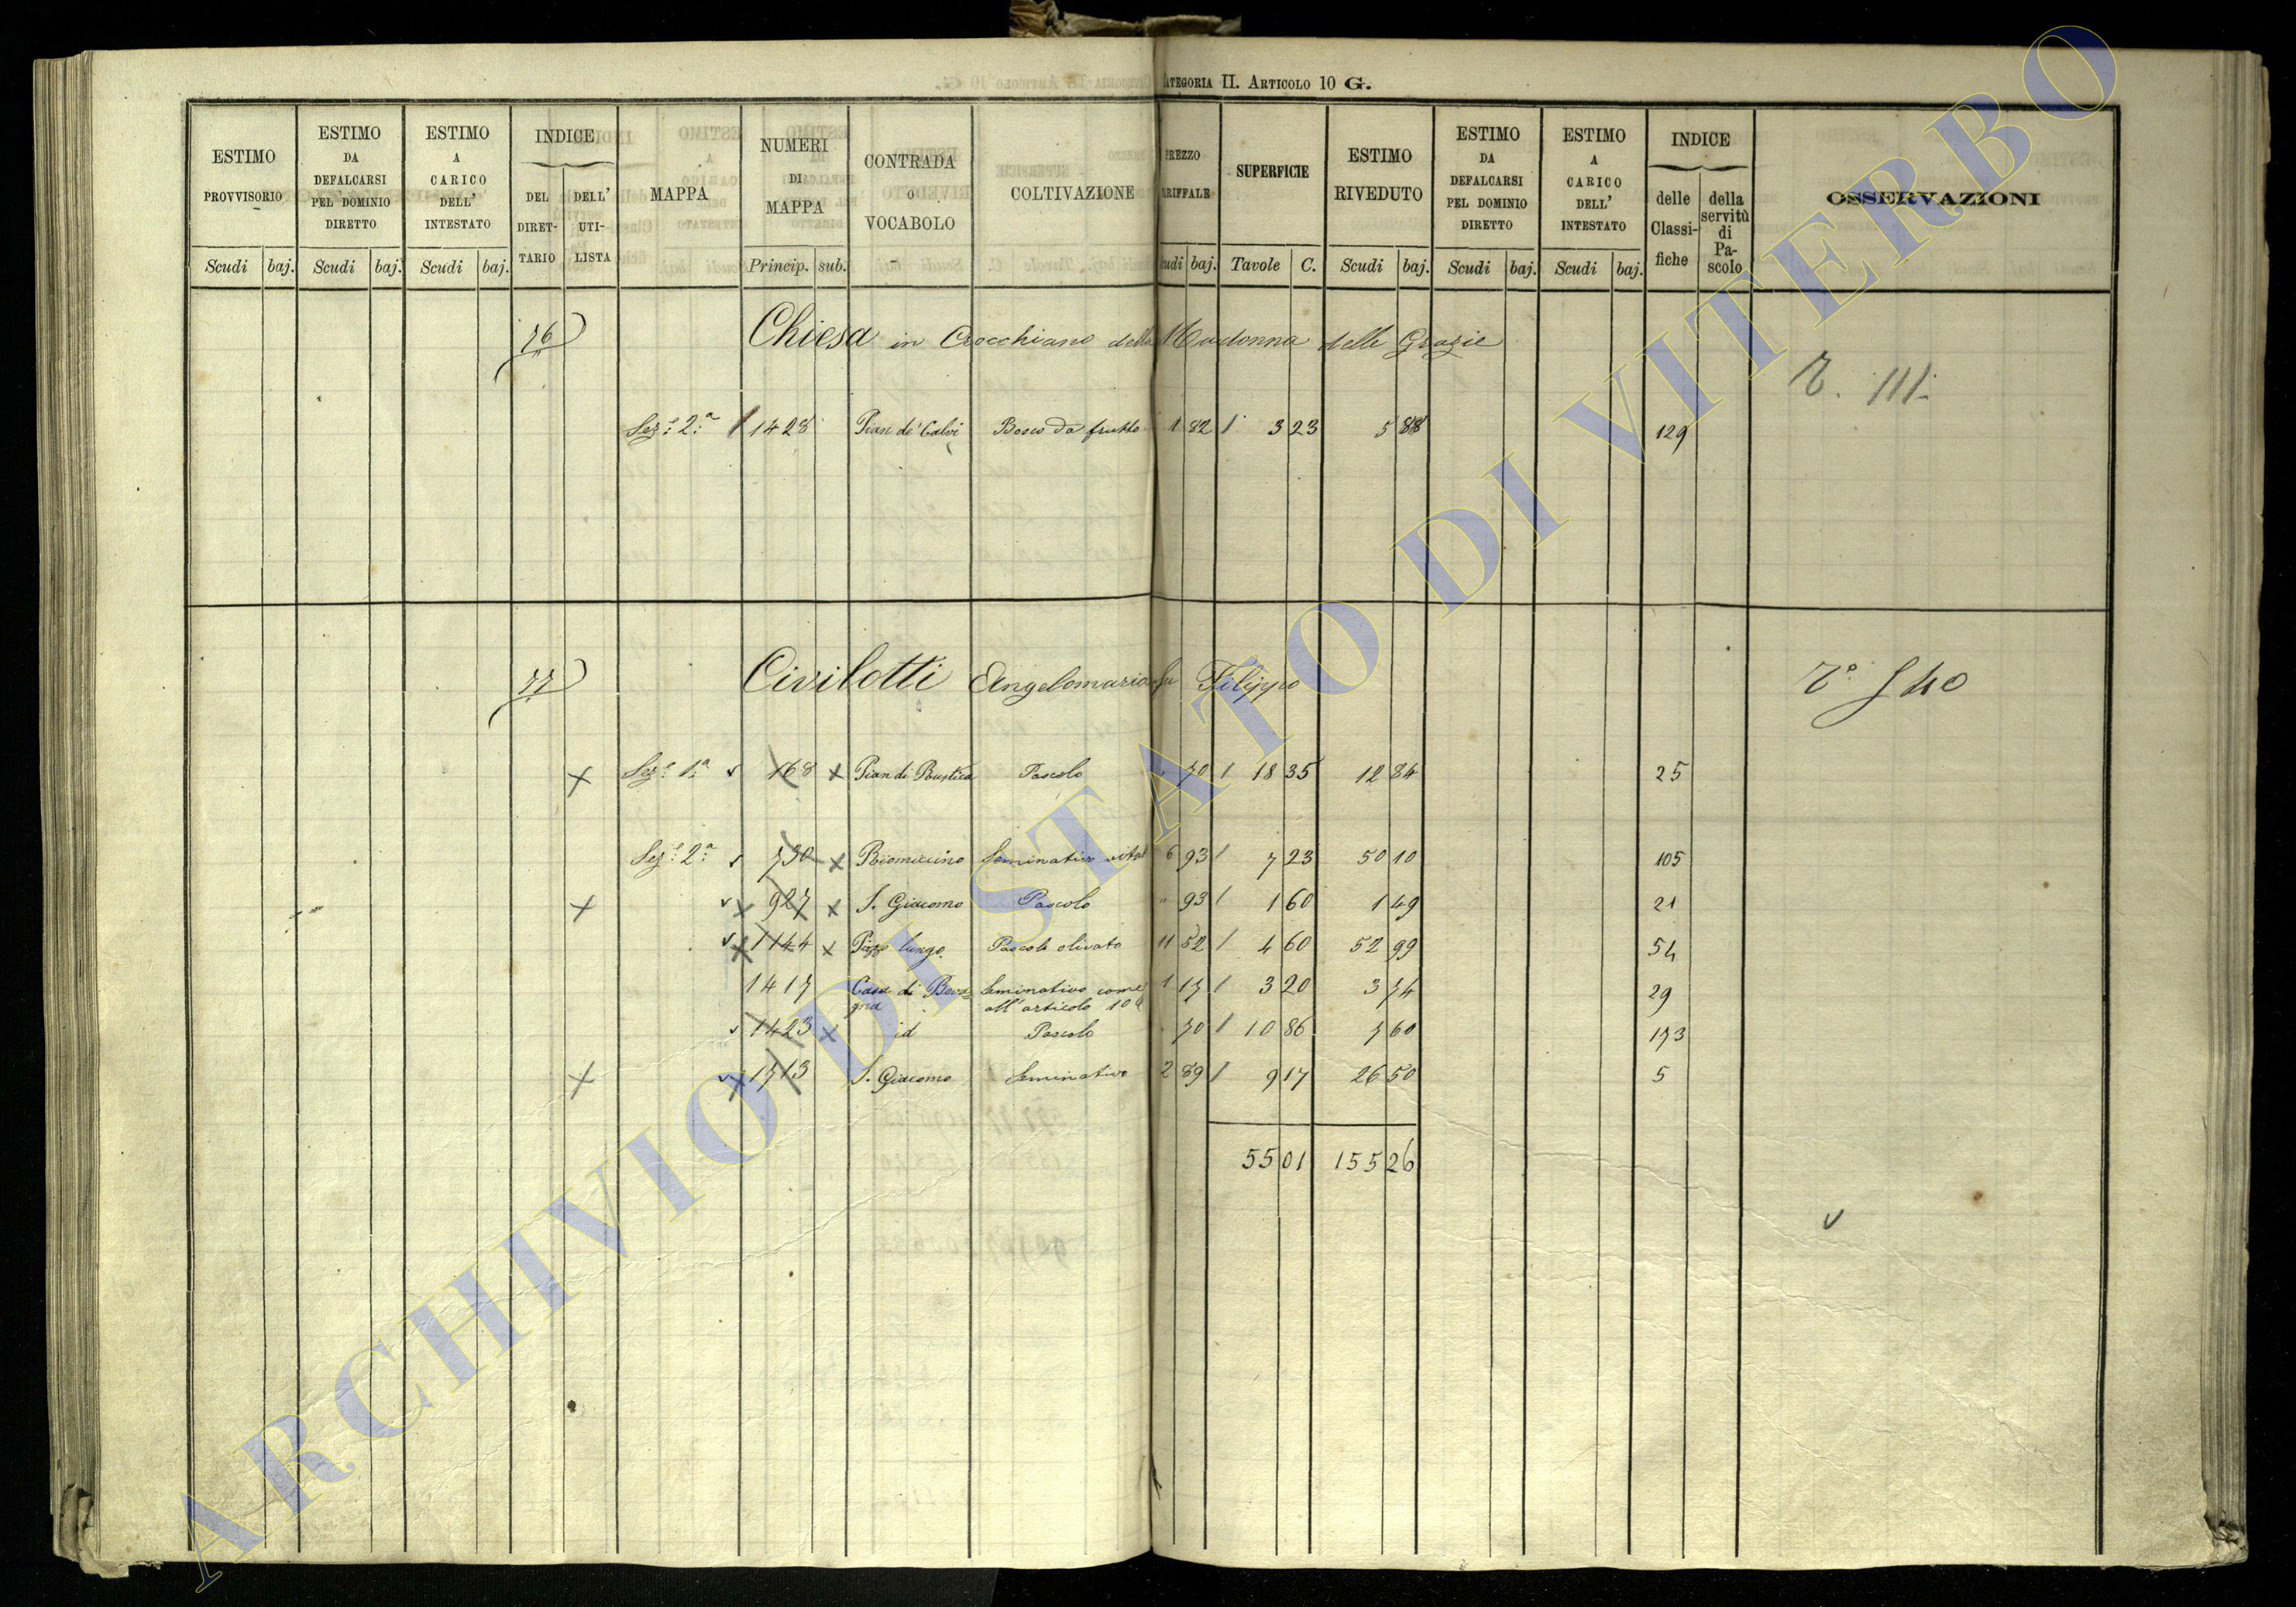 CATEGORIA II. ARTICOLO 10 G.
ESTIMO PROVVISORIO Scudi baj.
ESTIMO DA DEFALCARSI PEL DOMINIO DIRETTO Scudi baj.
ESTIMO A CARICO DELL' INTESTATO Scudi baj.
INDICE DEL DIRETTARIO DELL' UTILISTA
MAPPA
NUMERI DI MAPPA Princip. sub.
CONTRADA O VOCABOLO
COLTIVAZIONE
PREZZO TARIFFALE Scudi baj.
SUPERFICIE Tavole C.
ESTIMO RIVEDUTO Scudi baj.
ESTIMO DA DEFALCARSI PEL DOMINIO DIRETTO Scudi baj.
ESTIMO A CARICO DELL' INTESTATO Scudi baj.
INDICE delle Classifiche della servitù di Pascolo
OSSERVAZIONI
76) Chiesa in Crocchiano della Madonna delle Grazie
Sez.e 2.a 1428 Pian de' Calvi Bosco da frutto 1 82 3 23 5 88 129
77) Civilotti Angelomaria fu Filippo
Sez.e 1.a 168 Pian di Rustica Pascolo 70 18 35 12 84 25
Sez.e 2.a 730 Riomicino Seminativo vitato 6 93 7 23 50 10 105
927 S. Giacomo Pascolo " 93 1 60 1 49 21
1144 Pizzo lungo Pascolo olivato 11 52 4 60 52 99 54
1417 Casa di Bevagna Seminativo come all'articolo 10 1 17 3 20 3 74 29
1423 id Pascolo 70 10 86 7 60 173
1713 S. Giacomo Seminativo 2 89 9 17 26 50 5
55 01 155 26
ARCHIVIO DI STATO DI VITERBO